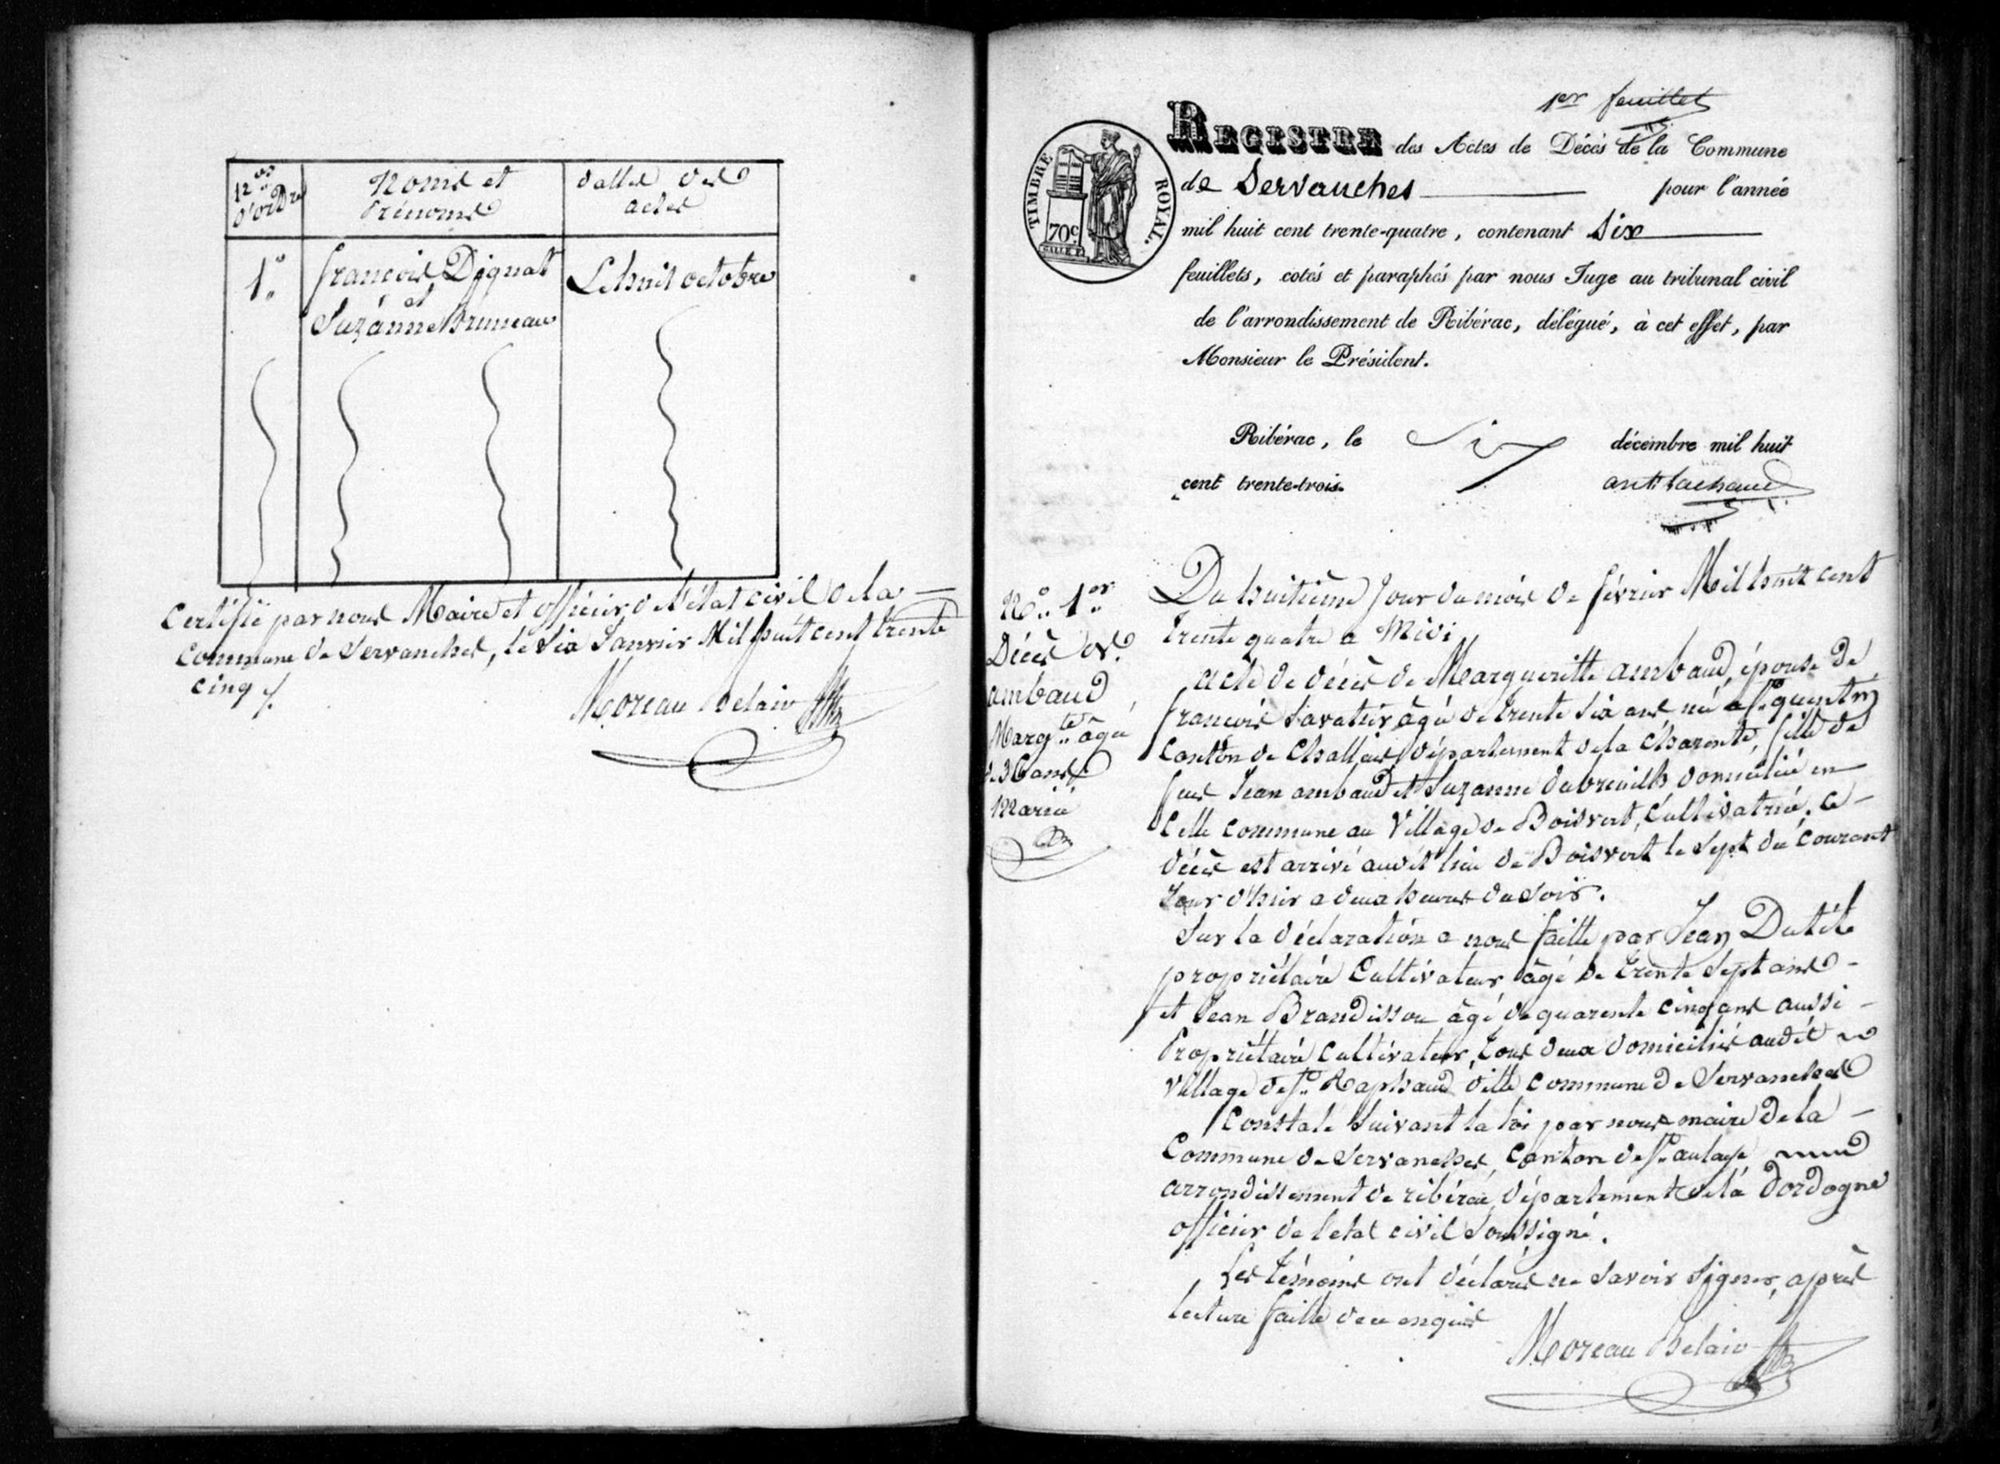 Nos d'ordre
Noms et Prénoms
dattes des actes
1o.
françois Dignat
et
Suzánne Bruneau
Le huit octobre
Certifié par nous Maire et officier de l'état civil de la
Commune de Servanches, le Six Janvier Mil huit cent trente
cinq /.
Moreau Belair
1er feuillet
REGISTRE des Actes de Décès de la Commune
de Servanches pour l'année
mil huit cent trente-quatre, contenant Six
feuillets, cotés et paraphés par nous Juge au tribunal civil
de l'arrondissement de Ribérac, délégué, à cet effet, par
Monsieur le Président.
TIMBRE ROYAL.
70c.
Ribérac, le Six décembre mil huit
cent trente-trois.
No. 1er
Décès de
ambaud
Margte âgé
de 36 ans
marié
Du huitième Jour du mois de février Mil huit cent
trente quatre a Midi
acte de décès de Margueritte ambaud, épouse de
françois Savatier âgé de trente six ans né a St quentin
Canton de Challais département de la Charente, fille de
feus Jean ambaud et Suzanne dubreuilh domicilié en
cette commune au village de Boisvert, Cultivatrice, ce
décès est arrivé audit lieu de Boisvert le sept du courant
Jour d'hier a deux heures du soir.
Sur la déclaration a nous faitte par Jean Dutéte
propriétaire Cultivateur âgé de trente sept ans
et Jean Brandissou âgé de quarente cinq ans aussi
Propriétaire Cultivateur, tous deux domiciliés audit
village de St Raphaud ditte commune de Servanches
Constaté Suivant la loi par nous maire de la
Commune de Servanches, Canton de St aulaye
arrondissement de ribérac, département de la dordogne
officier de l'etat civil Soussigné.
Les témoins ont déclarés ne savoir signer, après
lecture faitte de ce enquis
Moreau Belair